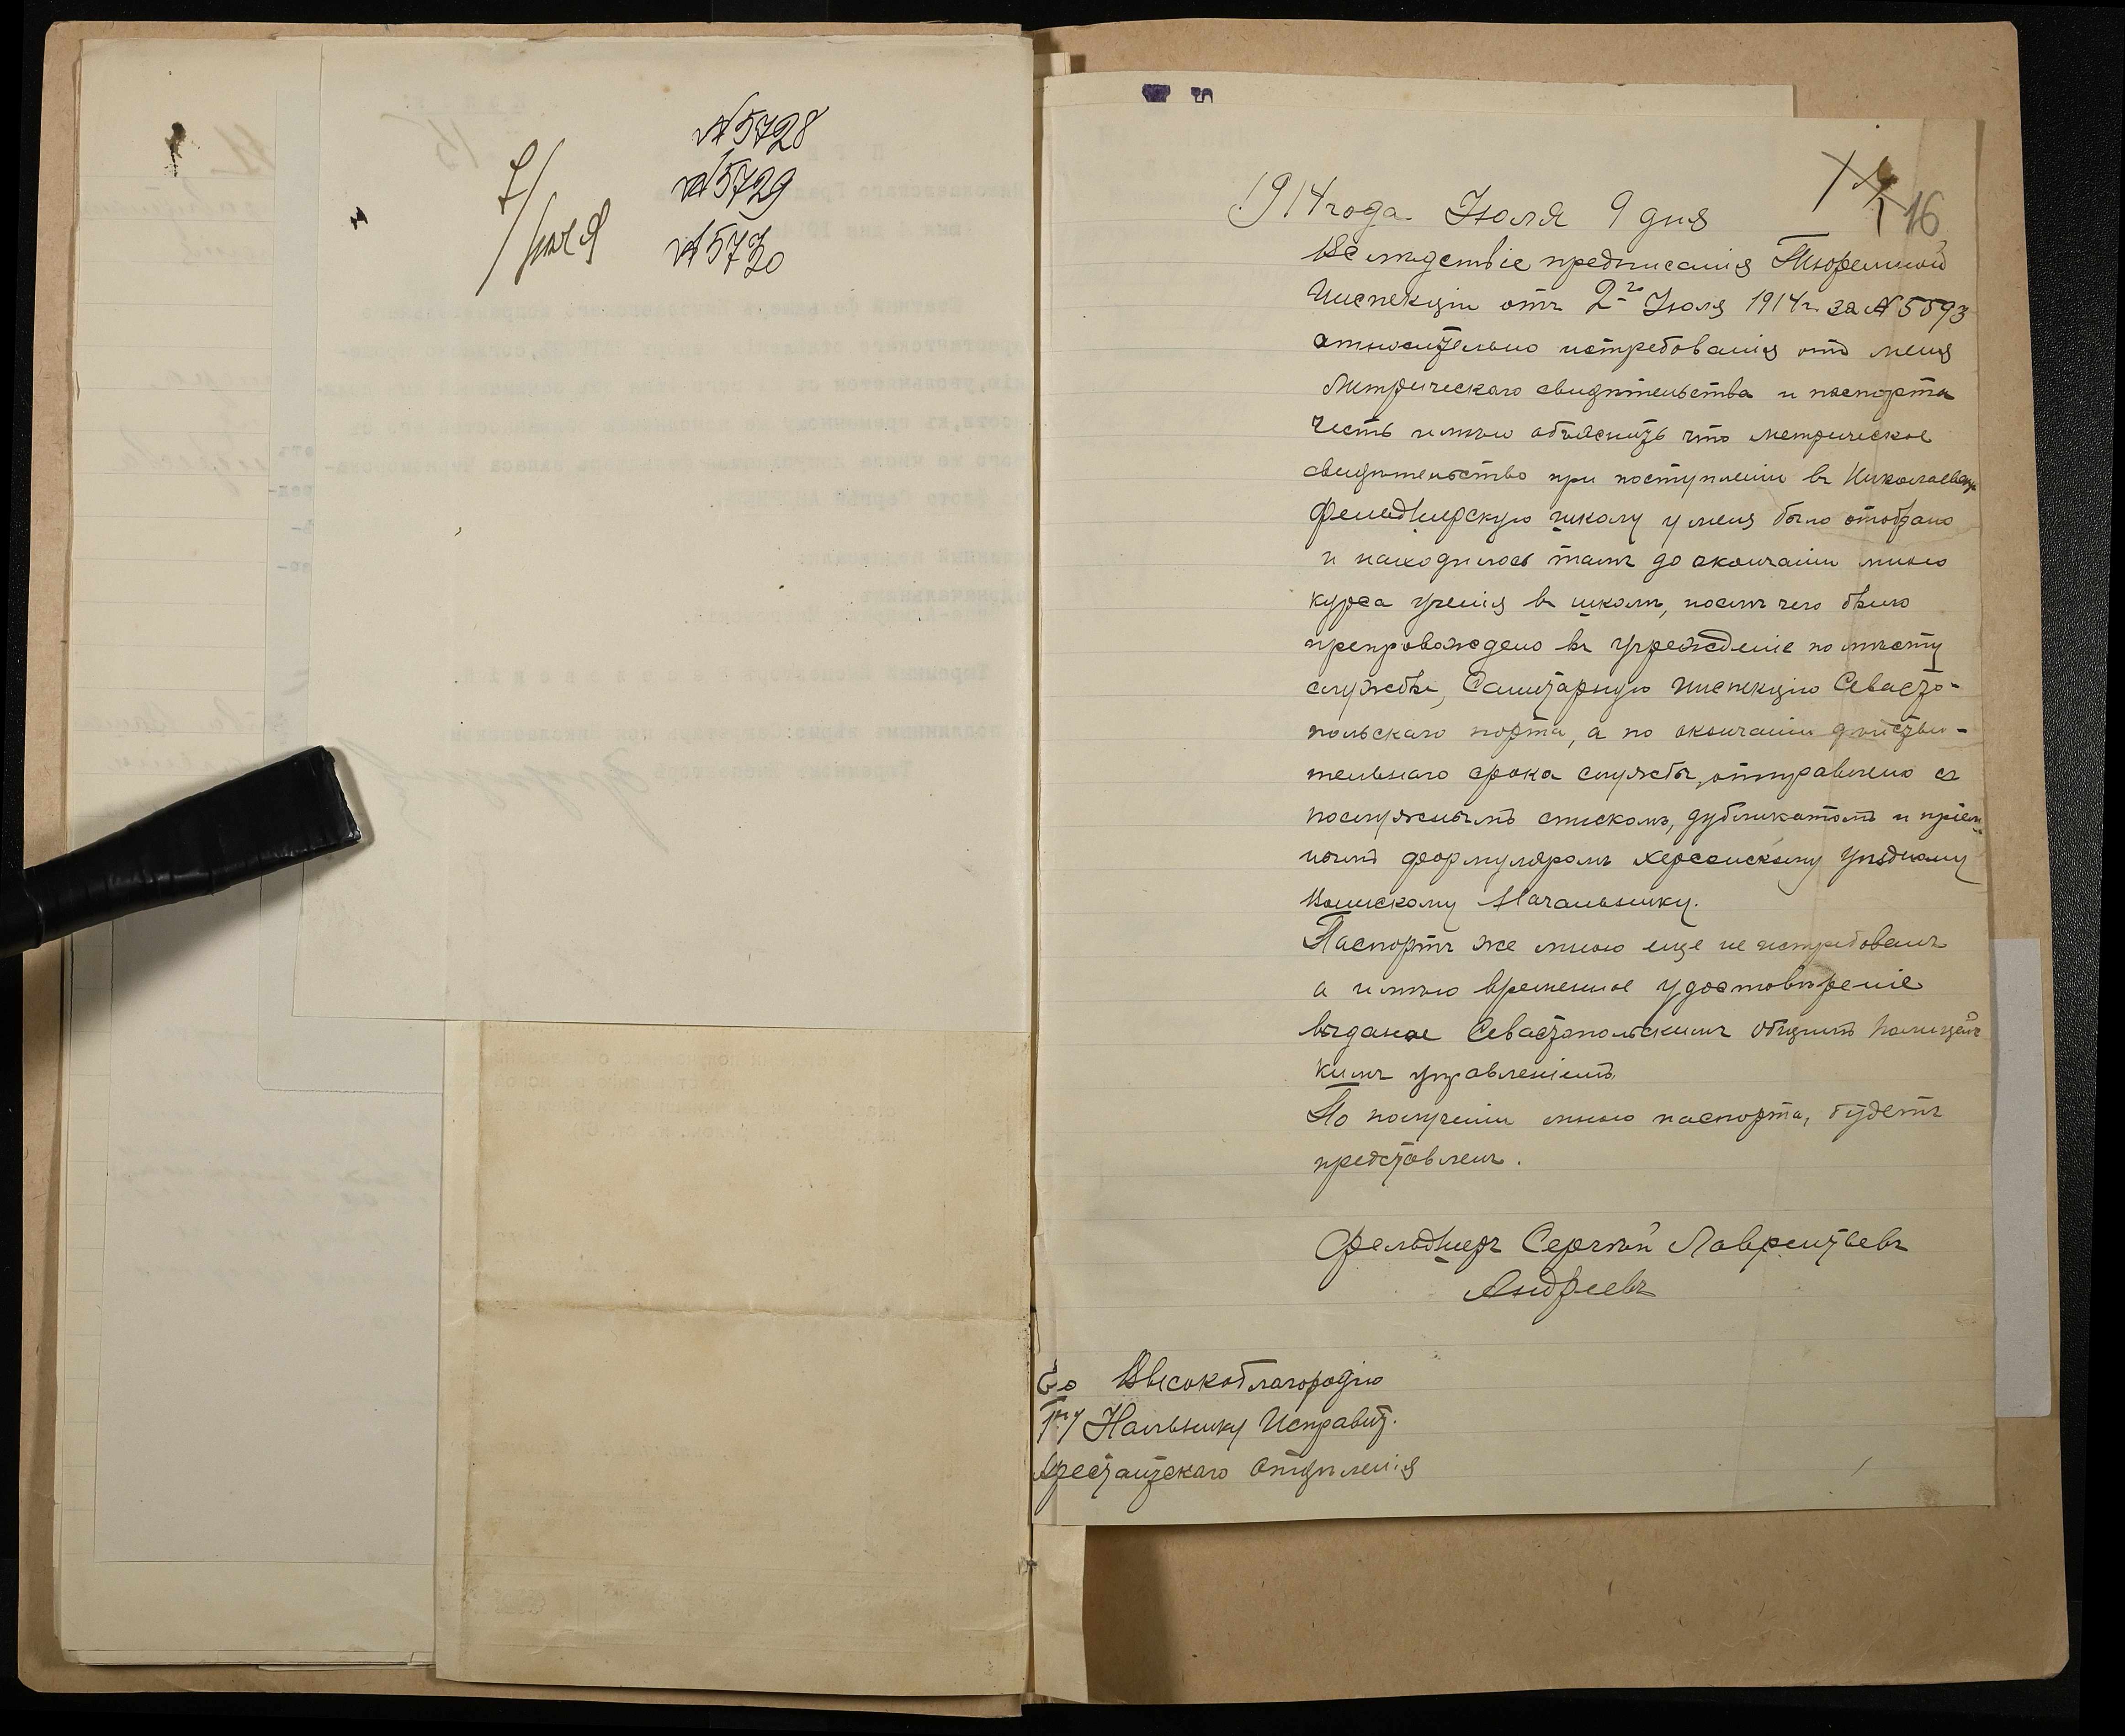 № 5728
№ 5729
№ 5730
7/
Іюля
16
1914 года. Іюля 9 дня
Вслѣдствіе предписанія Тюремной
Инспекціи отъ 2го Іюля 1914 г. за № 5593
относительно истребованія отъ меня
Метрическаго свидѣтельства и паспорта
Честь имѣю объяснить что метрическое
свидѣтельство при поступленіи въ Николаевскую
Фельдшерскую школу у меня было отобрано
и находилось тамъ до окончаніи мною
курса ученія въ школѣ, послѣ чего было
препровождено въ учрежденіе по мѣсту
службы, Санитарную инспекцію Севасто-
польскаго порта, а по окончаніи дѣйстви-
тельнаго срока службы, отправлено съ
послужнымъ спискомъ, дубликатомъ и пріем-
нымъ формуляромъ Херсонскому Уѣздному
Воинскому Начальнику.
Паспортъ же мною еще не истребованъ
а имѣю временное удостовѣреніе
выданое Севастопольскимъ Общимъ Полицейс
кимъ управленіемъ
По полученіи мною паспорта, будетъ
представленъ.
Фельдшеръ Сергѣй Лаврентьевъ
Андреевъ
Его Высокоблагородію
Гну Начльнику Исправит.
Арестантскаго Отдѣленія